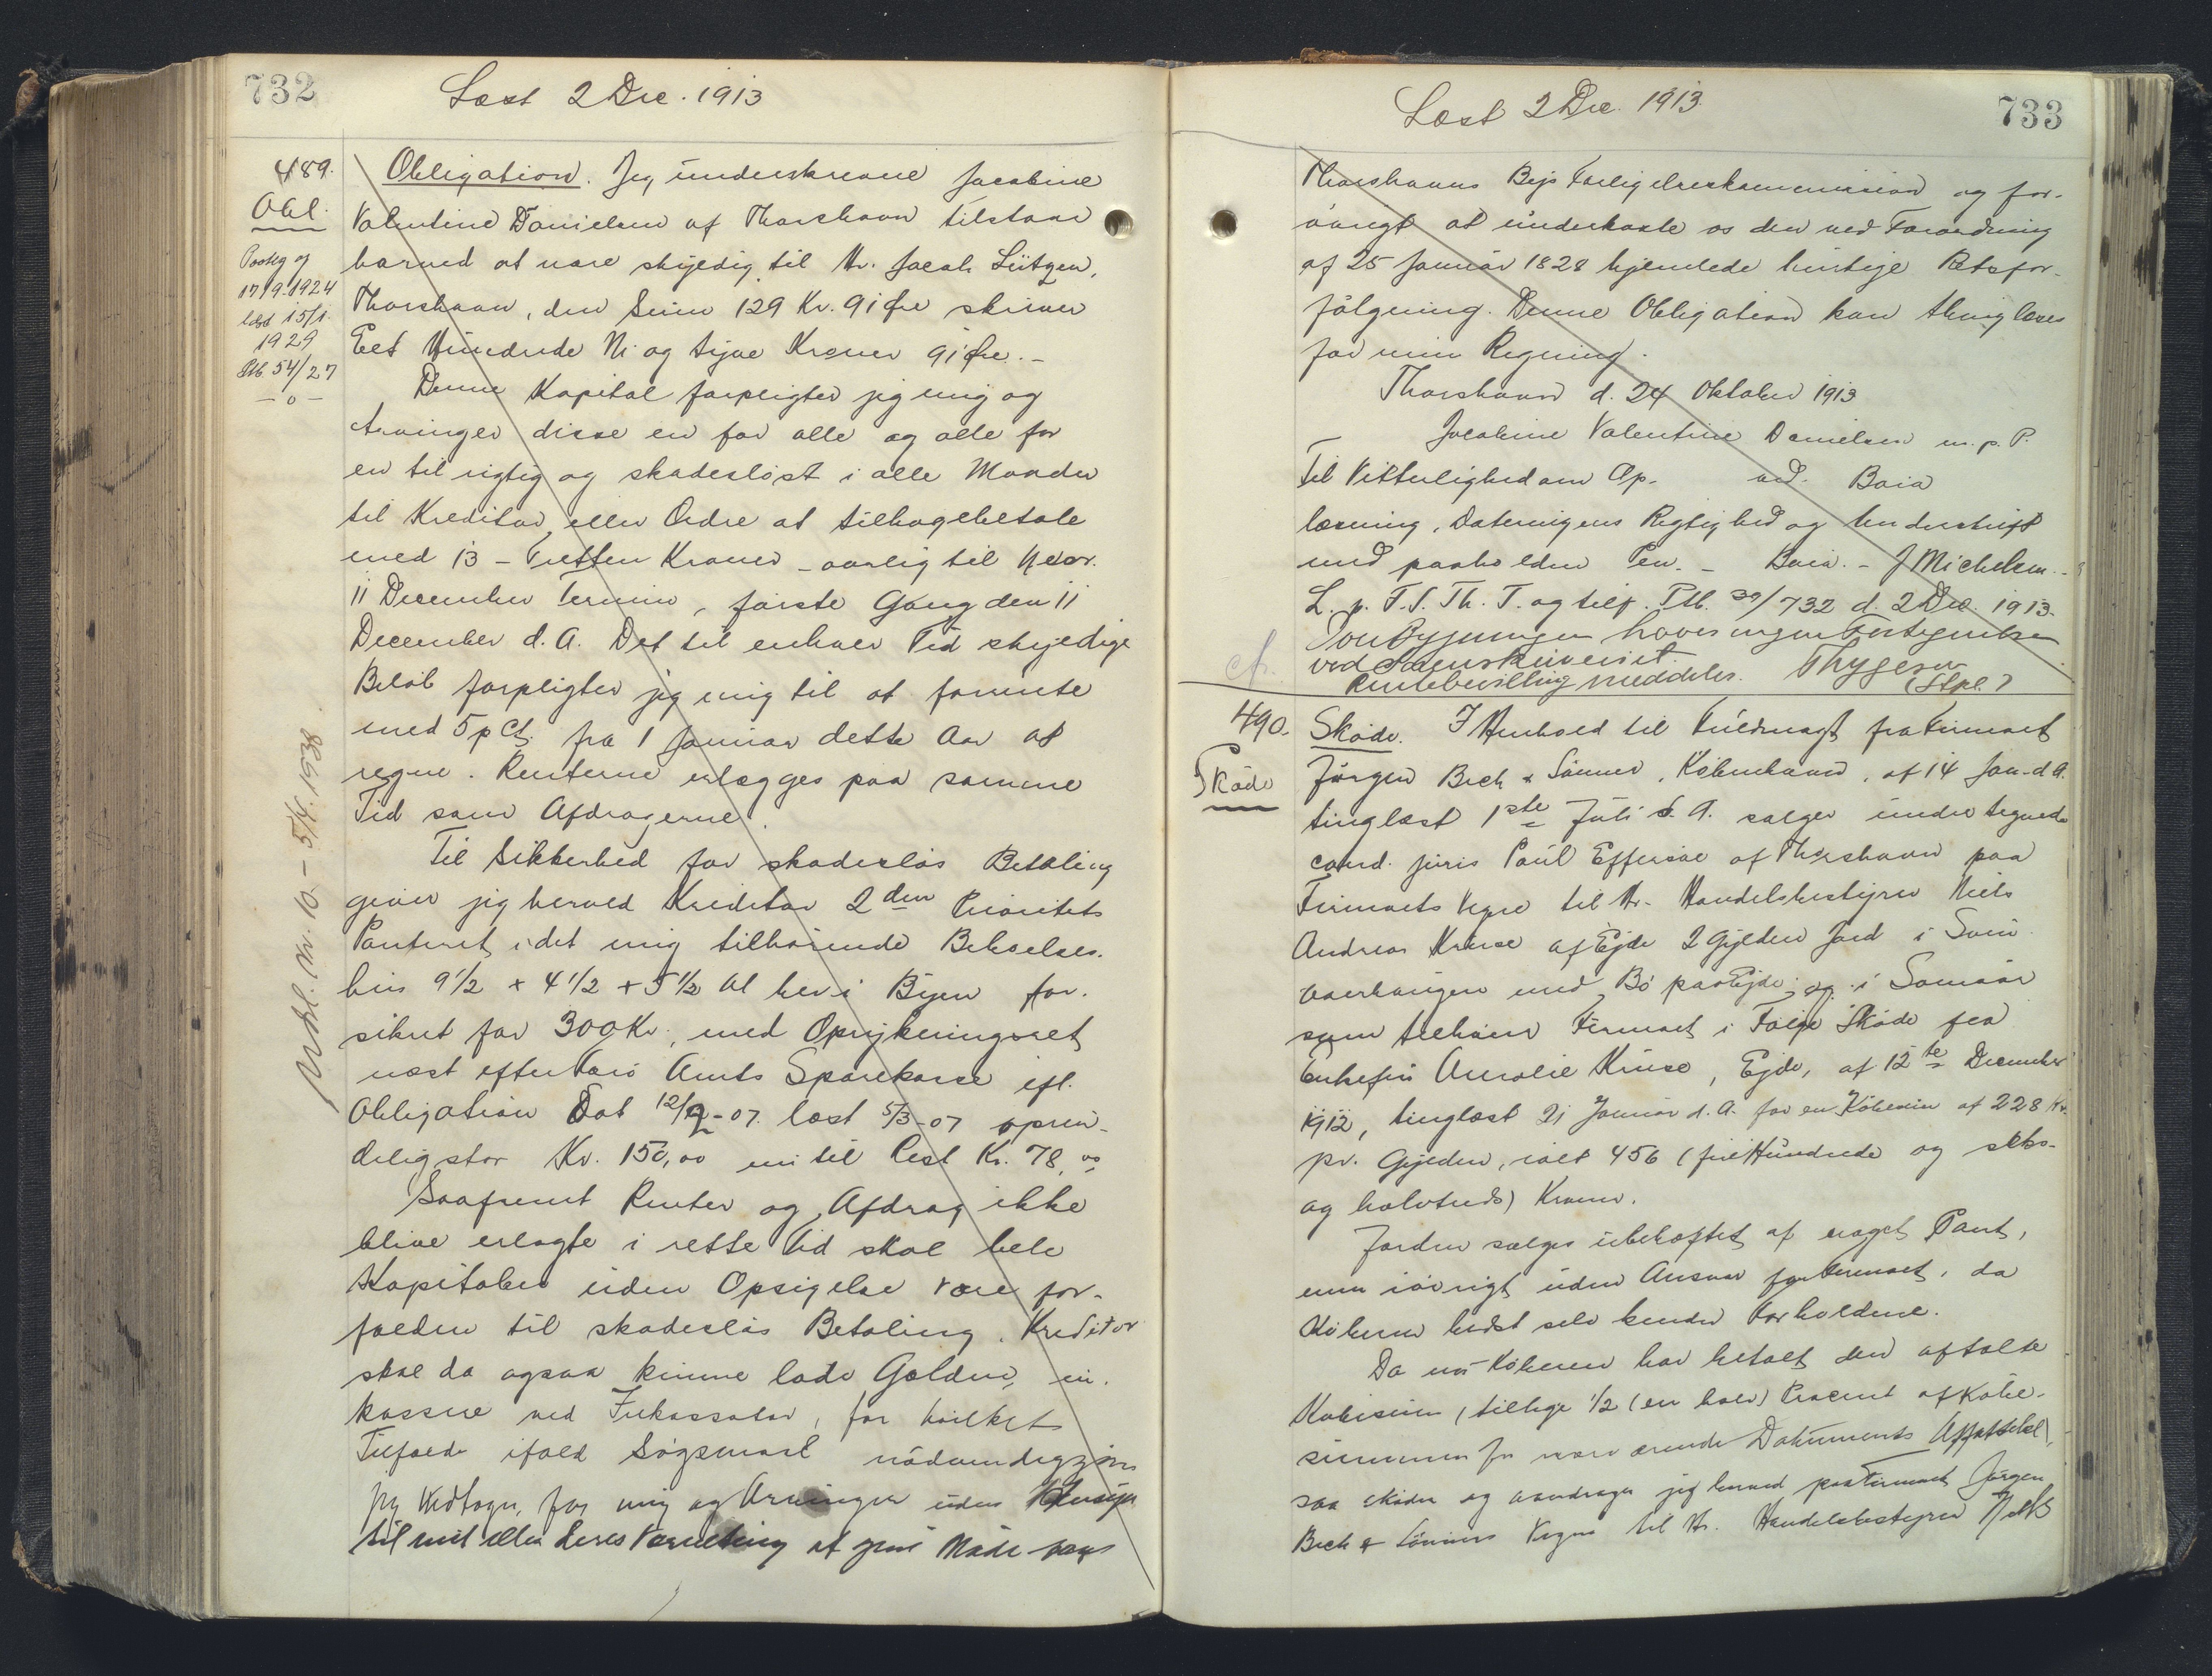 732
Læst 2 Dec. 1913
489.
Obl.
17/9-1924
læst 15/1.
1929
Pb. 54/27
—o—
Udsl. M. 10 - 5/4. 1938.
Obligation. Jeg underskrevne Jacobine
Valentine Danielsen af Thorshavn tilstaar
herved at være skyldig til Hr. Jacob Lützen,
Thorshavn, den Sum 129 Kr. 91 Øre skriver
Eet Hundrede Ni og tyve Kroner 91 Øre. –
Denne Kapital forpligter jeg mig og
Arvinger disse en for alle og alle for
en til rigtig og skadesløst i alle Maader
til Kreditor eller Ordre at tilbagebetale
med 13 – Tretten Kroner – aarlig til hver
11 December Termin, første Gang den 11
December d. A. Det til enhver Tid skyldige
Beløb forpligter jeg mig til at forrente
med 5 pCt. fra 1 Januar dette Aar at
regne. Renterne erlægges paa samme
Tid som Afdragerne.
Til Sikkerhed for skadesløs Betaling
giver jeg herved Kreditor 2den Prioritets
Panteret i det mig tilhørende Beboelses-
hus 9 1/2 + 4 1/2 + 5 1/2 Al her i Byen for-
sikret for 300 Kr., med Oprykningsret
næst efter Færø Amts Sparekasse ifl.
Obligation Dat 12/2-07. læst 5/3-07 oprin-
delig stor Kr. 150,00 nu til Rest Kr. 78,00
Saafremt Renter og Afdrag ikke
blive erlagte i rette Tid skal hele
Kapitalen uden Opsigelse være for-
falden til skadesløs Betaling. Kreditor
skal da ogsaa kunne lade Gælden in-
kassere ved Inkassator, for hvilket
Tilfælde ifald Søgsmaal nødvendiggøres
jeg vedtager, for mig og Arvinger uden Hensyn
til mit eller deres Værneting at give Møde for
733
Læst 2 Dec. 1913.
Thorshavns Bys Forligelseskommission og for-
øvrigt at underkaste os den ved Forordning
af 25 Januar 1828 hjemlede hurtige Retsfor-
følgning. Denne Obligation kan thinglæses
for min Regning.
Thorshavn d. 24 Oktober 1913
Jacobine Valentine Danielsen m. p. P.
Til Vitterlighed om Op- ved. Baia
læsning, Dateringens Rigtighed og Underskrift
med paaholden Pen. – Baia. – J Michelsen. –
L. p. F. S. Th. T. og tilf. Pb. 39/732 d. 2 Dec. 1913.
Om Bygningen haves ingen Fortegnelse
ved Sorenskriveriet.
Rentebevilling meddeles. Thygesen
(Stpl.)
490.
Skøde
Skøde. I Henhold til Fuldmagt fra Firmaet
Jørgen Bech & Sønner, København, af 14 Jan. d. A.
tinglæst 1ste Juli d. A. sælger undertegnede
cand. juris Poul Effersøe af Thorshavn paa
Firmaets Vegne til Hr. Handelsbestyrer Niels
Andreas Kruse af Ejde 2 Gylden Jord i
med Bø paa Ejde og i
som tilhører Firmaet i Følge Skøde fra
Enkefru Amalie Kruse, Ejde, af 12te December
1912, tinglæst 21 Januar d. A. for en Købesum af 228 Kr.
pr. Gylden, ialt 456 (fire Hundrede og seks-
og halvtreds) Kroner.
Jorden sælges ubehæftet af noget Pant,
men iøvrigt uden Ansvar for Firmaet, da
Køberen bedst selv kender Forholdene.
Da nu Køberen har betalt den aftalte
Købesum (tillige 1/2 (en halv) Procent af Købe-
summen for nærværende Dokuments Affattelse),
saa skøder og overdrager jeg herved paa Firmaet Jørgen
Bech & Sønners Vegne til Hr. Handelsbestyrer Niels